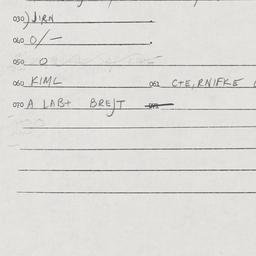 030) JIRN
040 0/-
050 0
060 KIML 061 C+E, RNIFKE
070 A LAB+ BREJT